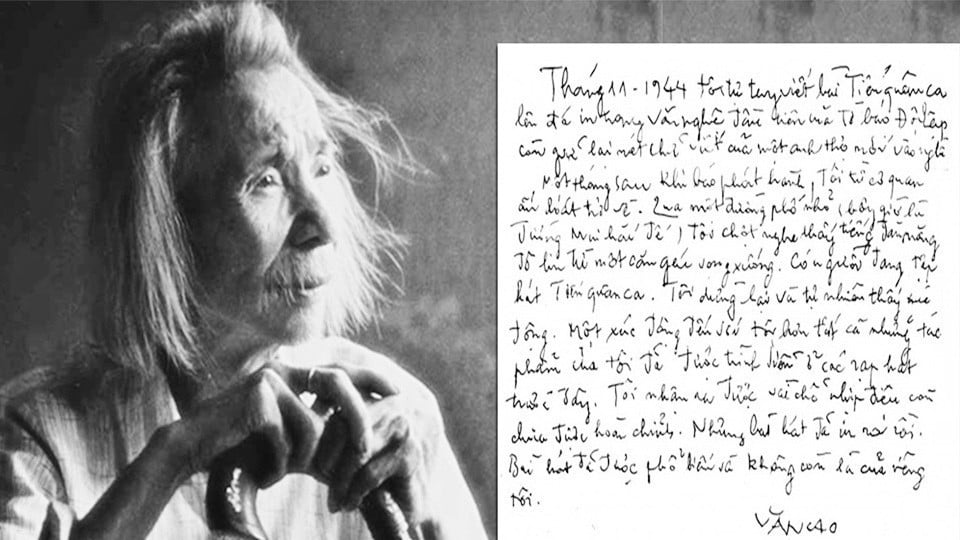 Tháng 11 - 1944 tôi tự tay viết bài Tiến quân ca
lên đá in trong văn nghệ đầu tiên mà Tờ báo Độc lập
còn giữ lại nét chữ viết của một anh thợ mới vào nghề
Một tháng sau khi báo phát hành, Tôi từ cơ quan
ấn loát trở về. Qua một đường phố nhỏ (bây giờ là
đường Mai hắc Đế) tôi chợt nghe thấy tiếng đàn măng
đô lin từ một căn gác vọng xuống. Có người đang tập
hát Tiến quân ca. Tôi dừng lại và tự nhiên thấy xúc
động. Một xúc động đến với tôi hơn tất cả những tác
phẩm của tôi đã được trình diễn ở các rạp hát
trước đây. Tôi nhận ra được vài chỗ nhịp điệu còn
chưa được hoàn chỉnh. Nhưng bài hát đã in ra rồi.
Bài hát đã được phổ biến và không còn là của riêng
tôi.
VĂN CAO